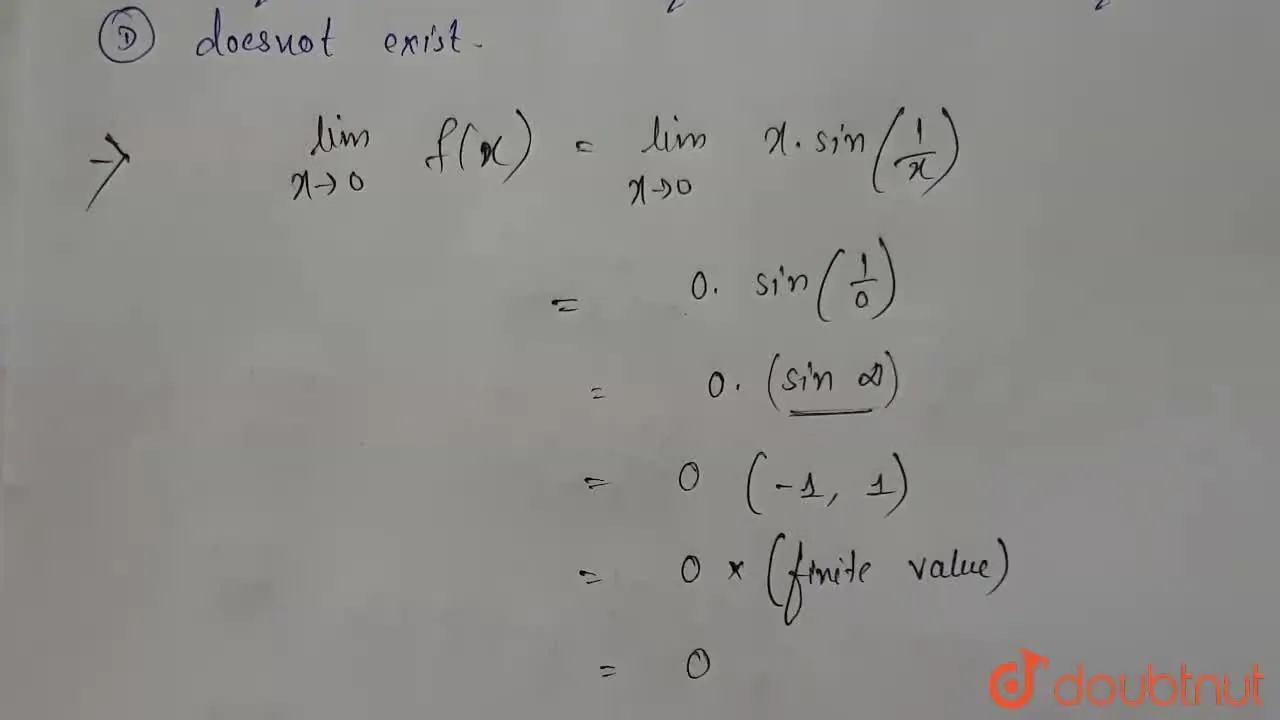 (D) doesnot exist.
→ lim x→0 f(x) = lim x→0 x. sin(1/x)
= 0. sin(1/0)
= 0. (sin ∞)
= 0 (-1, 1)
= 0 × (finite value)
= 0
doubtnut